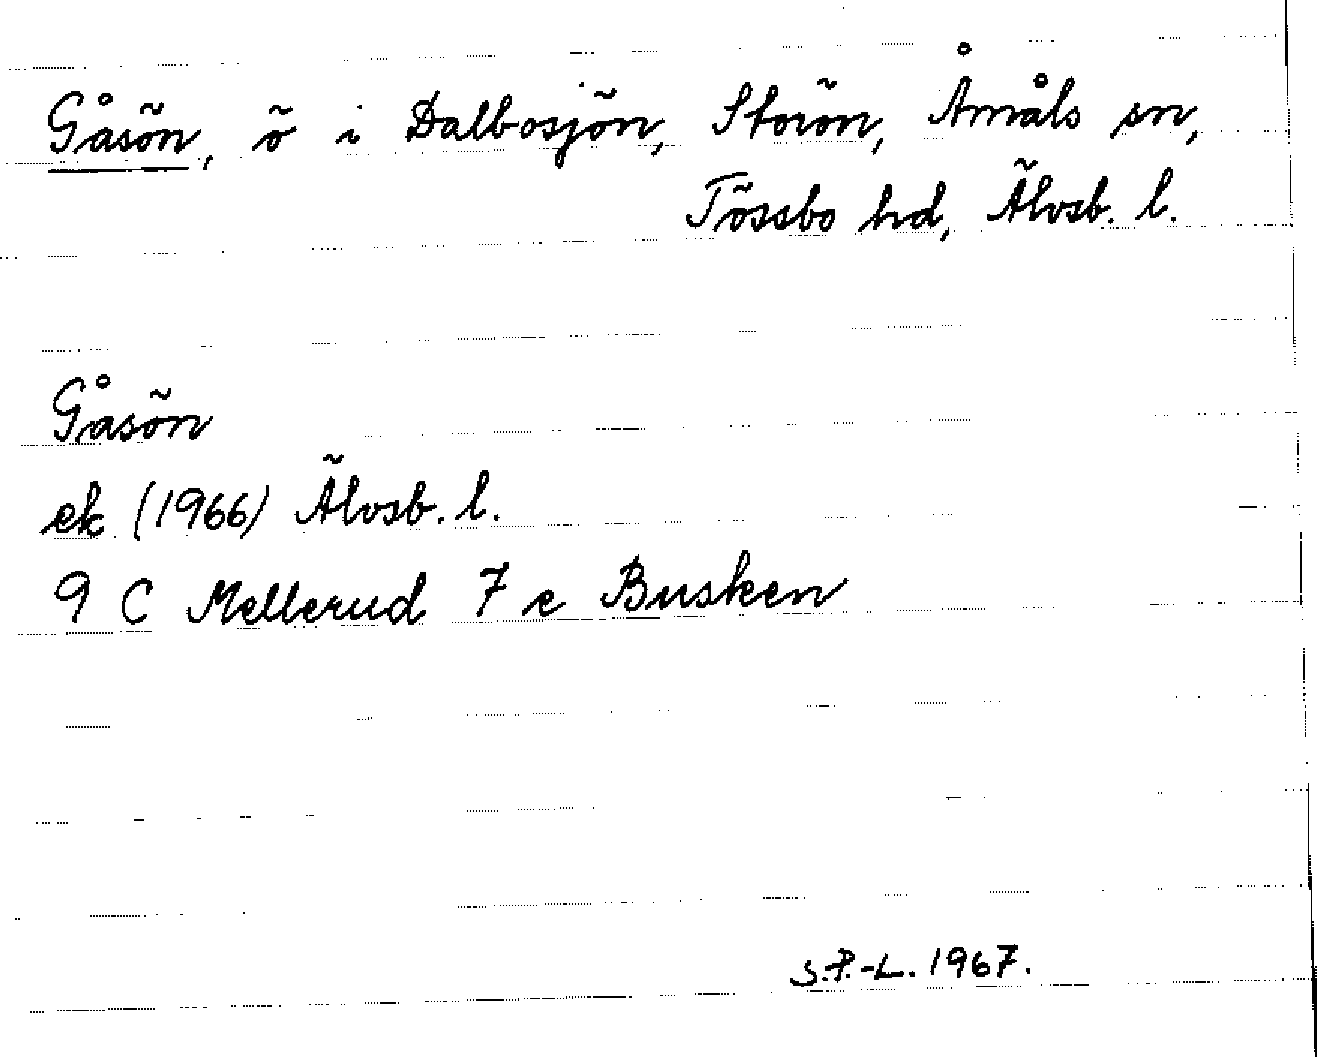 Gåsön, ö i Dalbosjön, Storön, Åmåls sn,
Tössbo hd, Älvsb. l.
Gåsön
ek (1966) Älvsb. l.
9 C Mellerud 7 e Busken
S.P.-L. 1967.